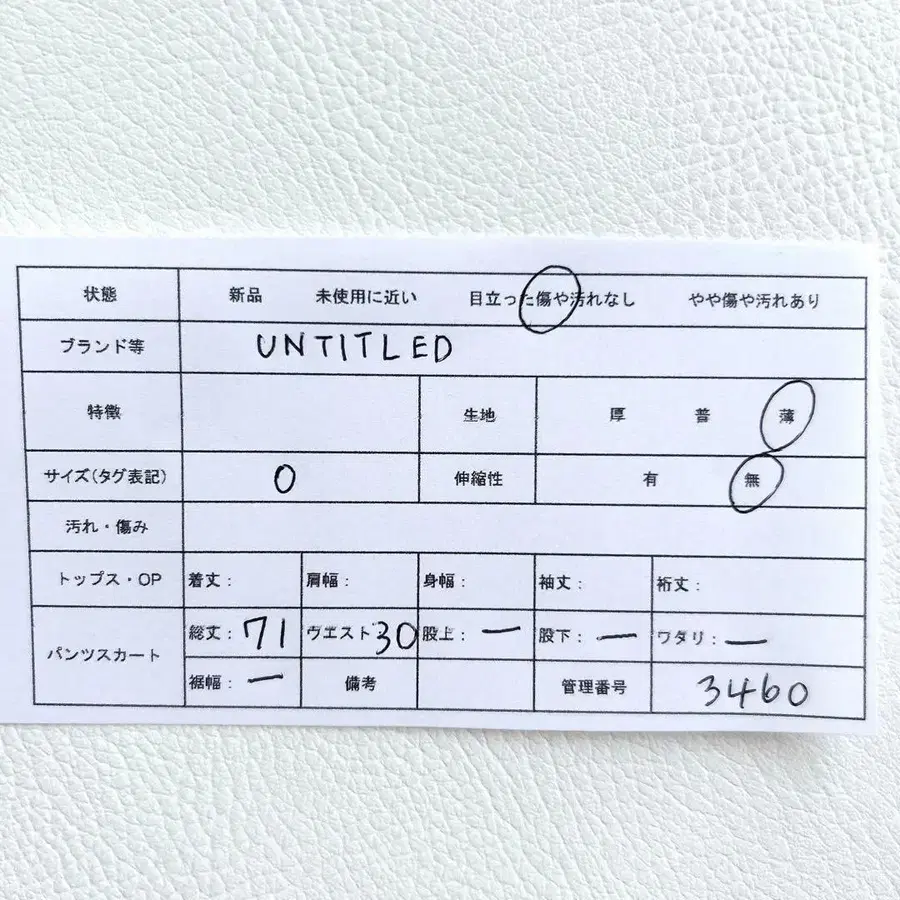 状態 新品 未使用に近い 目立った傷や汚れなし やや傷や汚れあり
ブランド等 UNTITLED
特徴 生地 厚 普 薄
サイズ(タグ表記) 0 伸縮性 有 無
汚れ・傷み
トップス・OP 着丈: 肩幅: 身幅: 袖丈: 裄丈:
パンツスカート 総丈:71 ウエスト30 股上:ー 股下:ー ワタリ:ー
裾幅:ー 備考 管理番号 3460